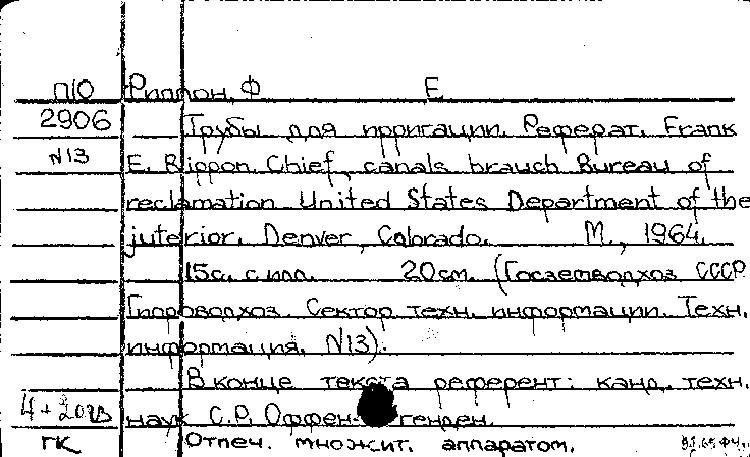 П10 Риппон, Ф Е.
2906 Трубы для ирригации. Реферат. Frank
N13 E. Rippon. Chief, canals brauch Bureau of
reclamation United States Department of the
juterior. Denver, Colorado. М., 1964.
15с. с илл. 20см. (Госземводхоз СССР
Гипроводхоз. Сектор техн. информации. Техн.
информация. N13).
В конце текста референт: канд. техн.
наук С.Р. Оффен-генден.
ГК Отпеч. множит. аппаратом.